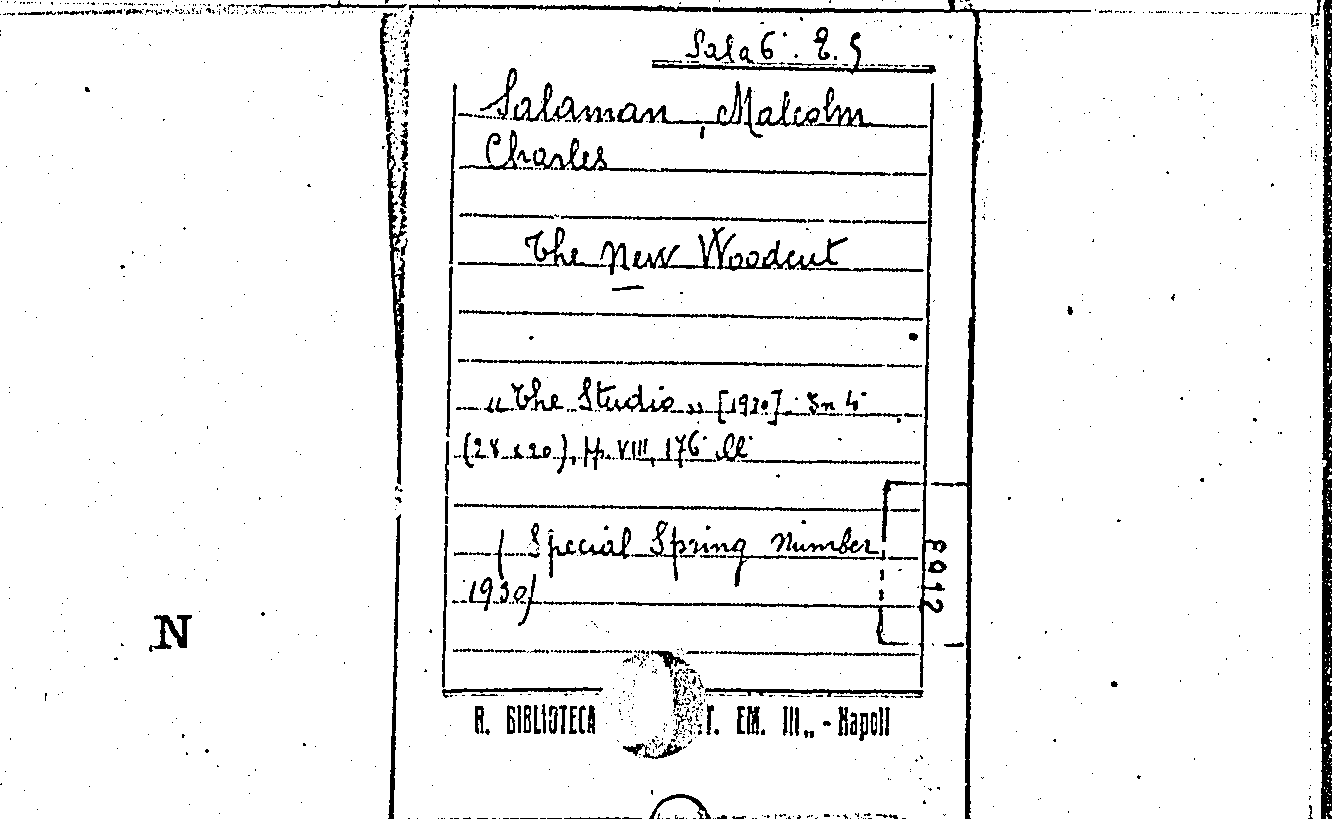 Sala 6. E. 5
Salaman, Malcolm
Charles
The New Woodcut
"The Studio" [1930]. In 4°
(28 x 20), pp. VIII, 176 ill.
(Special Spring Number
1930)
R. BIBLIOTECA T. EM. III„ - Napoli
N